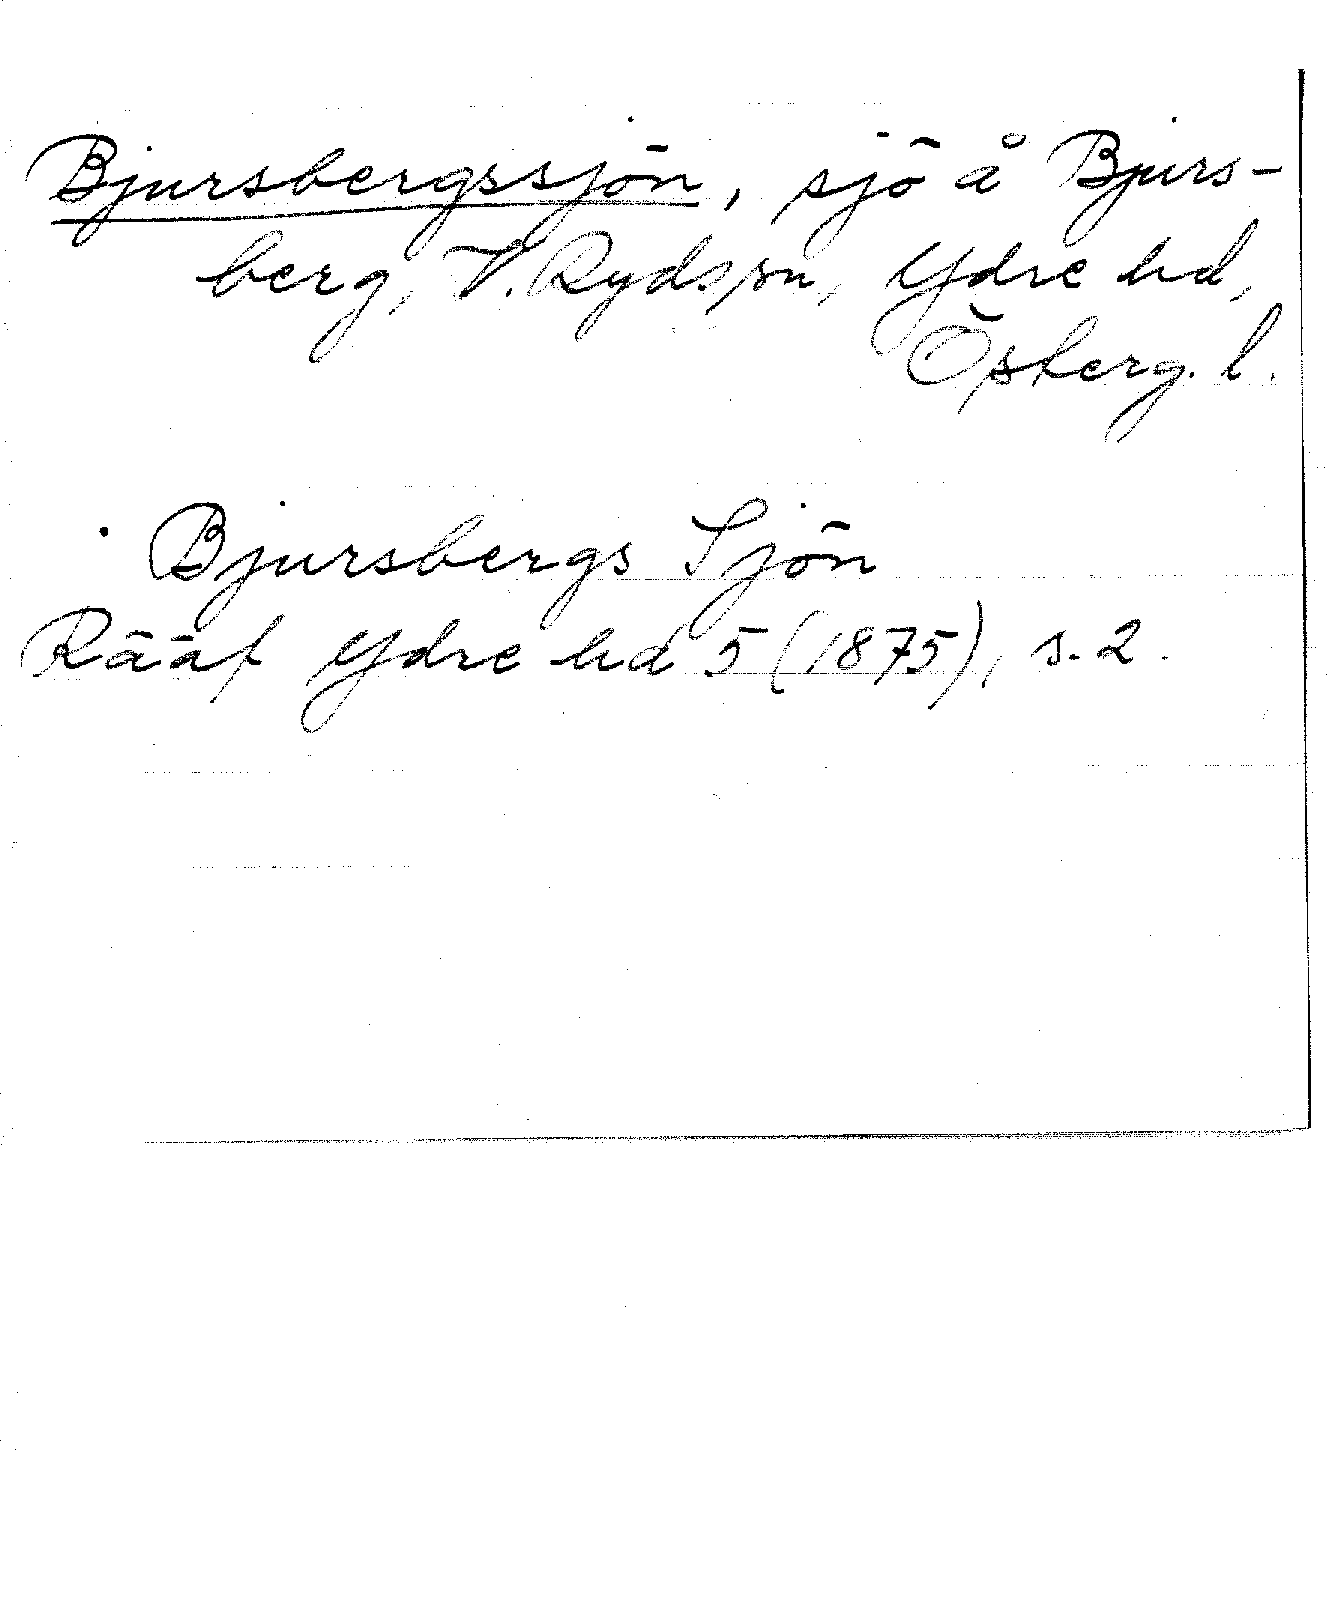 Bjursbergssjön, sjö å Bjurs-
berg, V. Ryds sn, Ydre hd,
Österg. l.
Bjursbergs Sjön
Rääf Ydre hd 5 (1875), s. 2.